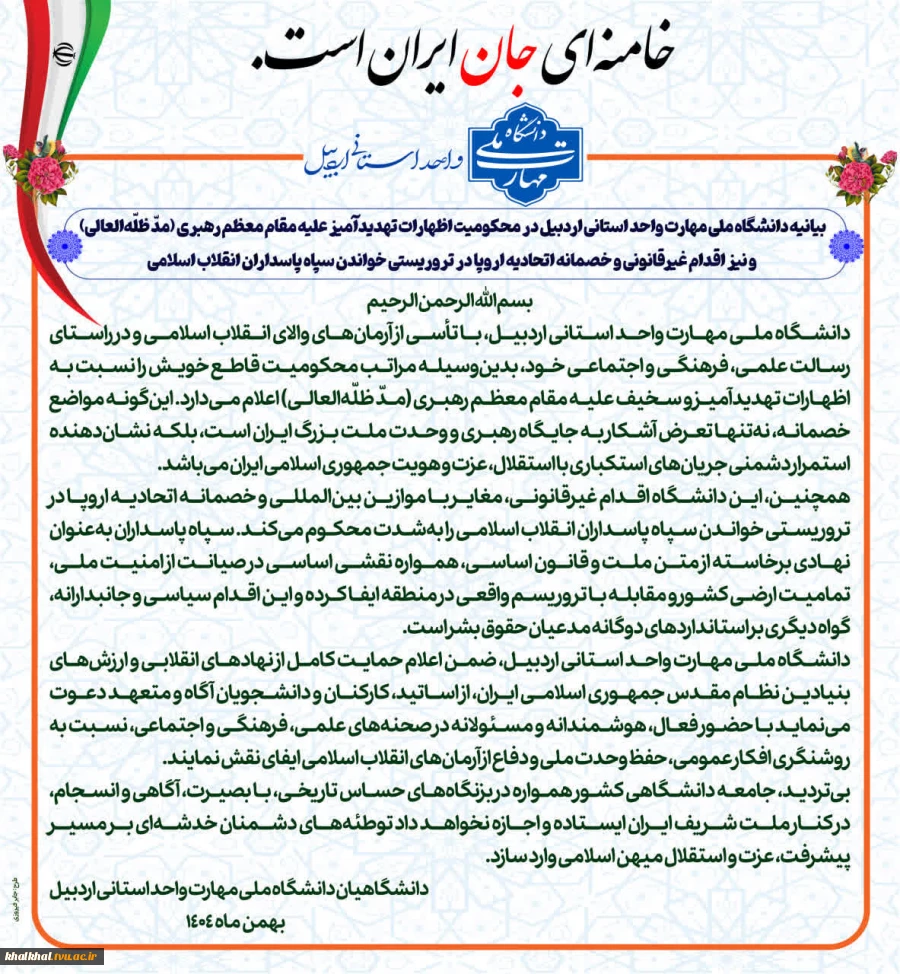 خامنه‌ای جان ایران است.
دانشگاه ملی مهارت
واحد استانی اردبیل
بیانیه دانشگاه ملی مهارت واحد استانی اردبیل در محکومیت اظهارات تهدیدآمیز علیه مقام معظم رهبری (مدّ ظلّه‌العالی)
و نیز اقدام غیرقانونی و خصمانه اتحادیه اروپا در تروریستی خواندن سپاه پاسداران انقلاب اسلامی
بسم‌الله الرحمن الرحیم
دانشگاه ملی مهارت واحد استانی اردبیل، با تأسی از آرمان‌های والای انقلاب اسلامی و در راستای
رسالت علمی، فرهنگی و اجتماعی خود، بدین‌وسیله مراتب محکومیت قاطع خویش را نسبت به
اظهارات تهدیدآمیز و سخیف علیه مقام معظم رهبری (مدّ ظلّه‌العالی) اعلام می‌دارد. این‌گونه مواضع
خصمانه، نه‌تنها تعرض آشکار به جایگاه رهبری و وحدت ملت بزرگ ایران است، بلکه نشان‌دهنده
استمرار دشمنی جریان‌های استکباری با استقلال، عزت و هویت جمهوری اسلامی ایران می‌باشد.
همچنین، این دانشگاه اقدام غیرقانونی، مغایر با موازین بین‌المللی و خصمانه اتحادیه اروپا در
تروریستی خواندن سپاه پاسداران انقلاب اسلامی را به‌شدت محکوم می‌کند. سپاه پاسداران به‌عنوان
نهادی برخاسته از متن ملت و قانون اساسی، همواره نقشی اساسی در صیانت از امنیت ملی،
تمامیت ارضی کشور و مقابله با تروریسم واقعی در منطقه ایفا کرده و این اقدام سیاسی و جانبدارانه،
گواه دیگری بر استانداردهای دوگانه مدعیان حقوق بشر است.
دانشگاه ملی مهارت واحد استانی اردبیل، ضمن اعلام حمایت کامل از نهادهای انقلابی و ارزش‌های
بنیادین نظام مقدس جمهوری اسلامی ایران، از اساتید، کارکنان و دانشجویان آگاه و متعهد دعوت
می‌نماید با حضور فعال، هوشمندانه و مسئولانه در صحنه‌های علمی، فرهنگی و اجتماعی، نسبت به
روشنگری افکار عمومی، حفظ وحدت ملی و دفاع از آرمان‌های انقلاب اسلامی ایفای نقش نمایند.
بی‌تردید، جامعه دانشگاهی کشور همواره در بزنگاه‌های حساس تاریخی، با بصیرت، آگاهی و انسجام،
در کنار ملت شریف ایران ایستاده و اجازه نخواهد داد توطئه‌های دشمنان خدشه‌ای بر مسیر
پیشرفت، عزت و استقلال میهن اسلامی وارد سازد.
دانشگاهیان دانشگاه ملی مهارت واحد استانی اردبیل
بهمن ماه ۱۴۰۴
khalkhal.tvu.ac.ir